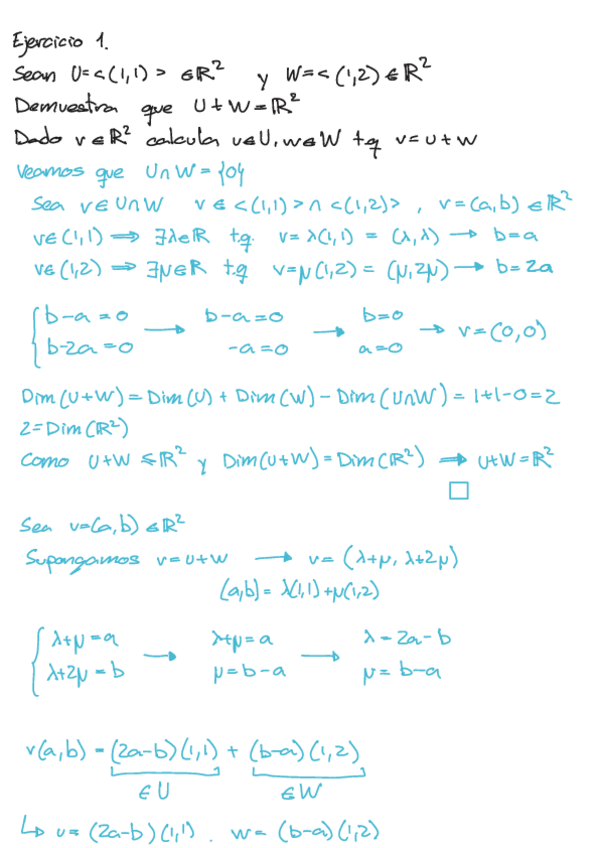 Ejercicio 1.
Sean U=<(1,1)> ∈ℝ² y W=<(1,2)∈ℝ²
Demuestra que U+W=ℝ²
Dado v∈ℝ² calcula u∈U, w∈W tq v=u+w
Veamos que U∩W={0}
Sea v∈U∩W v∈<(1,1)>∩<(1,2)>, v=(a,b)∈ℝ²
v∈(1,1) ⟹ ∃λ∈ℝ t.q. v=λ(1,1)=(λ,λ) → b=a
v∈(1,2) ⟹ ∃μ∈ℝ t.q v=μ(1,2)=(μ,2μ) → b=2a
{ b-a=0 → b-a=0 → b=0 → v=(0,0)
b-2a=0 -a=0 a=0
Dim(U+W)=Dim(U)+Dim(W)-Dim(U∩W)=1+1-0=2
2=Dim(ℝ²)
Como U+W≤ℝ² y Dim(U+W)=Dim(ℝ²) ⟹ U+W=ℝ²
□
Sea v=(a,b)∈ℝ²
Supongamos v=u+w → v=(λ+μ, λ+2μ)
(a,b)=λ(1,1)+μ(1,2)
{ λ+μ=a → λ+μ=a → λ=2a-b
λ+2μ=b μ=b-a μ=b-a
v(a,b)=(2a-b)(1,1)+(b-a)(1,2)
∈U ∈W
↳ u=(2a-b)(1,1). w=(b-a)(1,2)